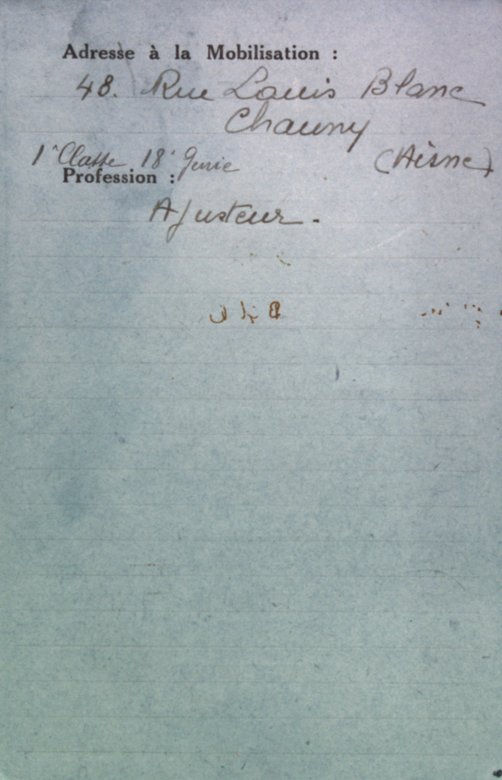 Adresse à la Mobilisation :
48. Rue Louis Blanc
Chauny
(Aisne)
1e Classe 18e Génie
Profession :
Ajusteur.